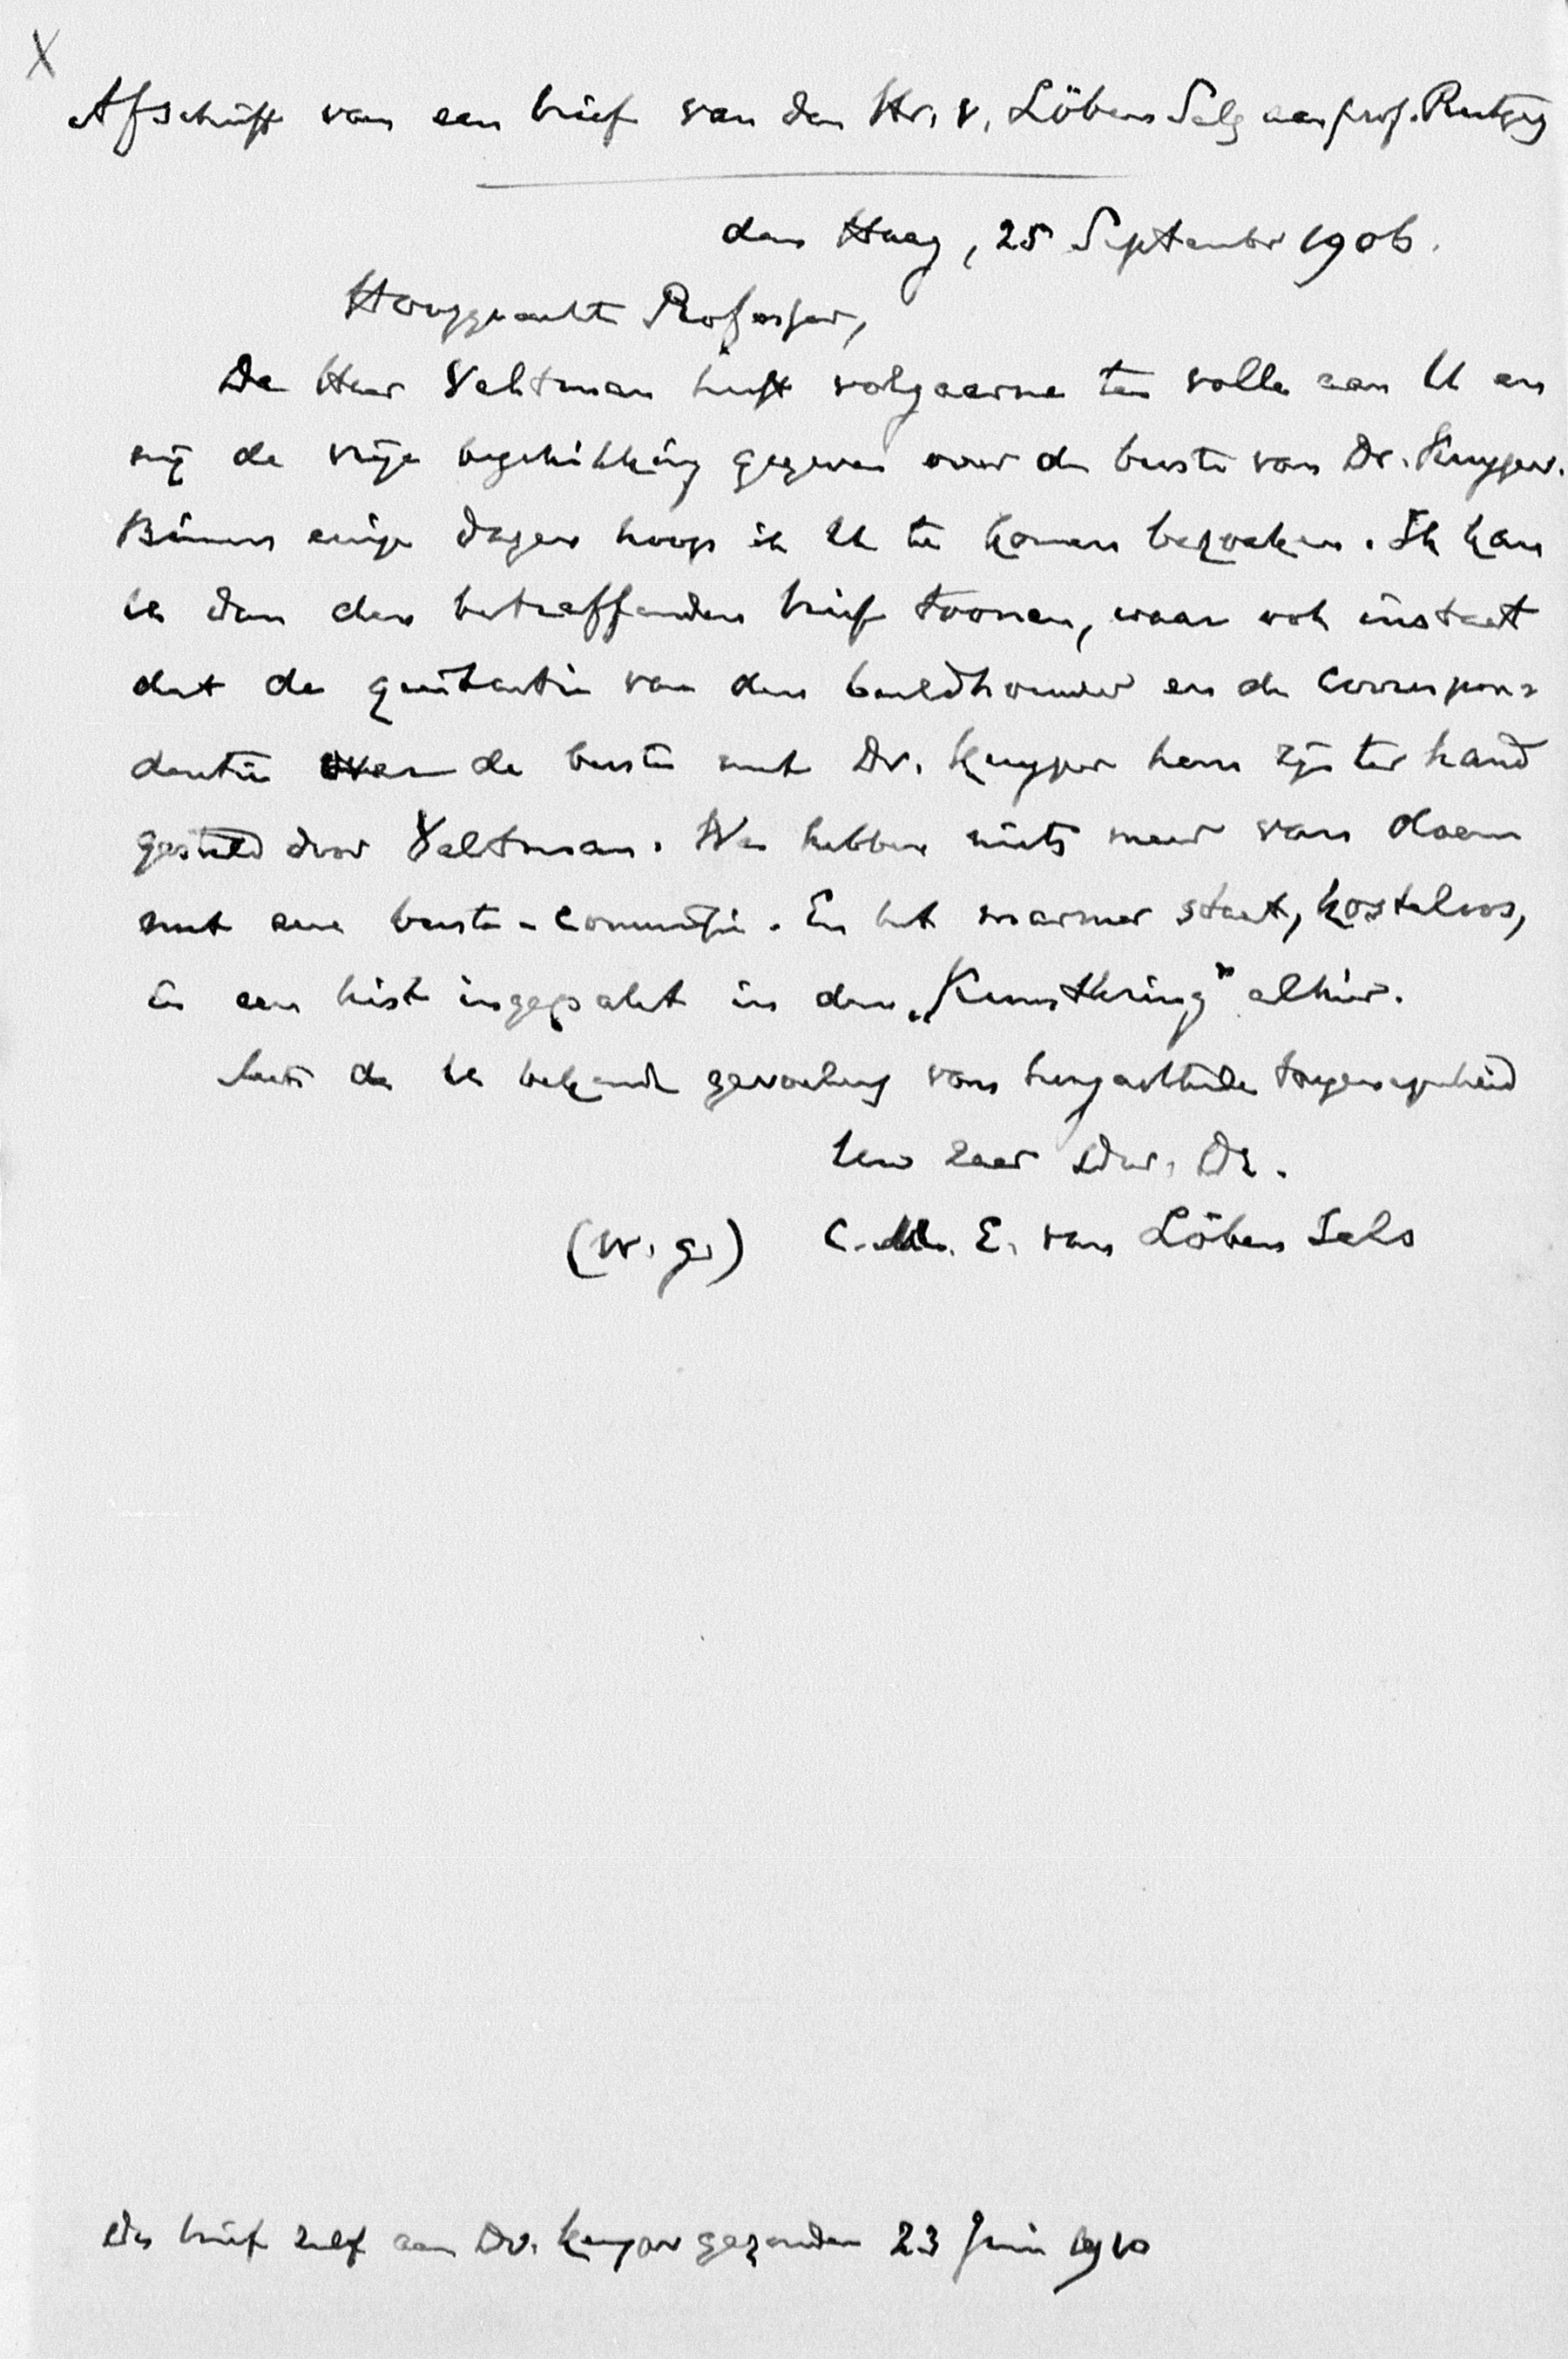 X
Afschrift van een brief van den Hr. v. Löben Sels aan prof. Rutgers
den Haag, 25 September 1906.
Hooggeachte Professor,
De Heer Veltman heeft volgaarne ten volle aan U en
mij de vrije beschikking gegeven over de buste van Dr. Kuyper.
Binnen eenige dagen hoop ik U te komen bezoeken. Ik kan
U dan den betreffenden brief toonen, waar ook instaat
dat de quitantie van den beeldhouwer en de correspon=
dentie over de buste met Dr. Kuyper hem zijn ter hand
gesteld door Veltman. We hebben niets meer van doen
met eene buste-commissie. En het marmer staat, kosteloos,
in een kist ingepakt in den „Kunstkring" alhier.
Met de U bekende gevoelens van hoogachtende toegenegenheid
Uw zeer Dw. Dr.
(w. g.) C. M. E. van Löben Sels
De brief zelf aan Dr. Kuyper gezonden 23 Juni 1910